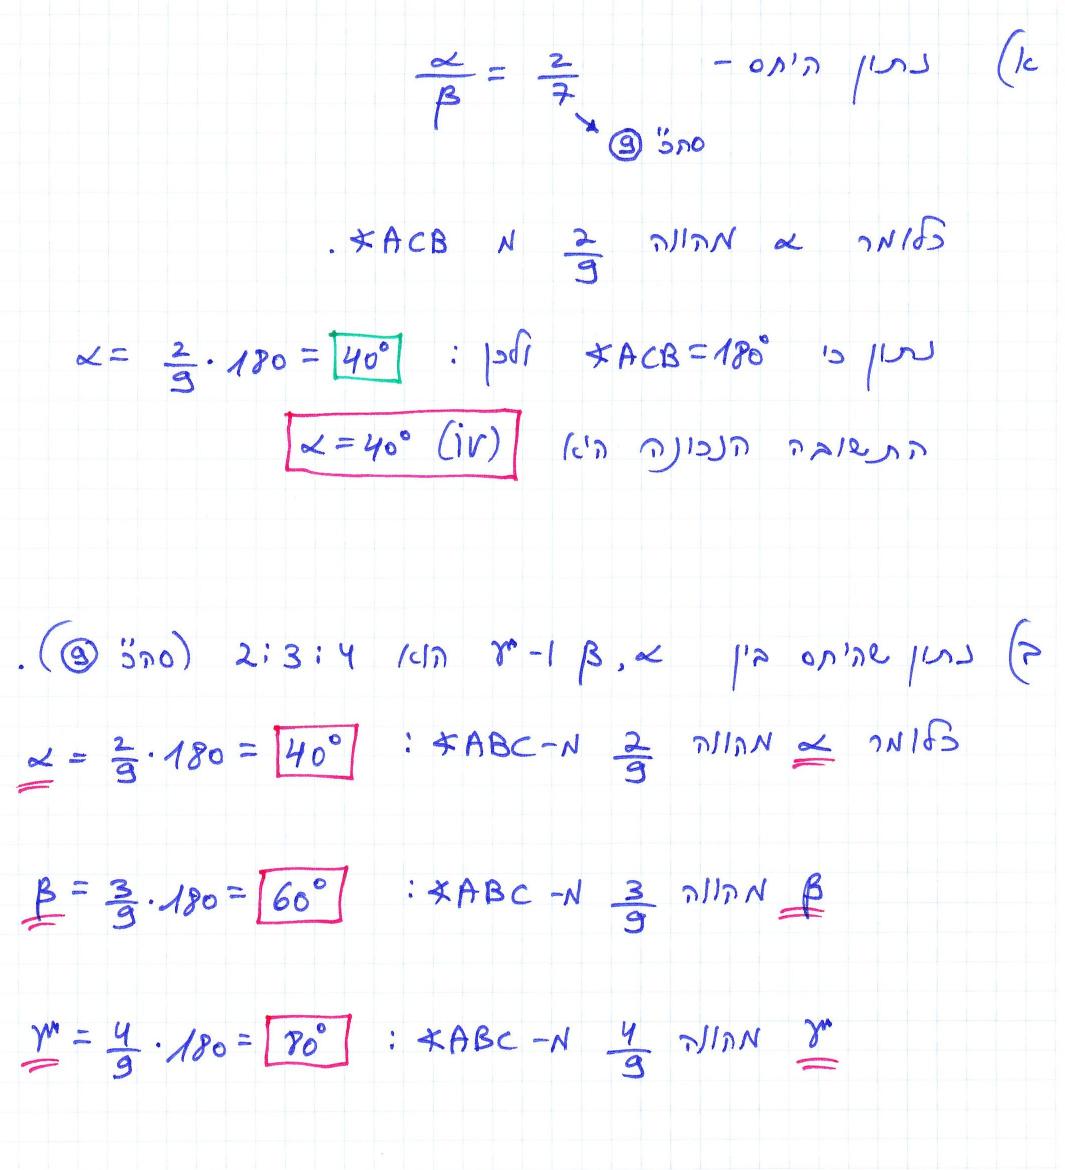 א) נתון היחס - α/β = 2/7
סה"כ 9
כלומר α מהווה 2/9 מ ∢ACB.
נתון כי ∢ACB=180° ולכן : α = 2/9 · 180 = 40°
התשובה הנכונה היא α=40° (iv)
ב) נתון שהיחס בין α, β ו-γ הוא 2:3:4 (סה"כ 9).
כלומר α מהווה 2/9 מ-∢ABC : α = 2/9 · 180 = 40°
β מהווה 3/9 מ-∢ABC : β = 3/9 · 180 = 60°
γ מהווה 4/9 מ-∢ABC : γ = 4/9 · 180 = 80°